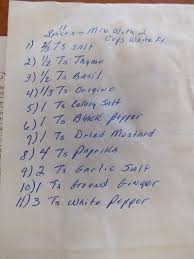 11 Spices - Mix With 2
Cups White Fl.
1) 2/3 Ts Salt
2) 1/2 Ts Thyme
3) 1/2 Ts Basil
4) 1/3 Ts Origino
5) 1 Ts Celery Salt
6) 1 Ts Black Pepper
7) 1 Ts Dried Mustard
8) 4 Ts Paprika
9) 2 Ts Garlic Salt
10) 1 Ts Ground Ginger
11) 3 Ts White Pepper